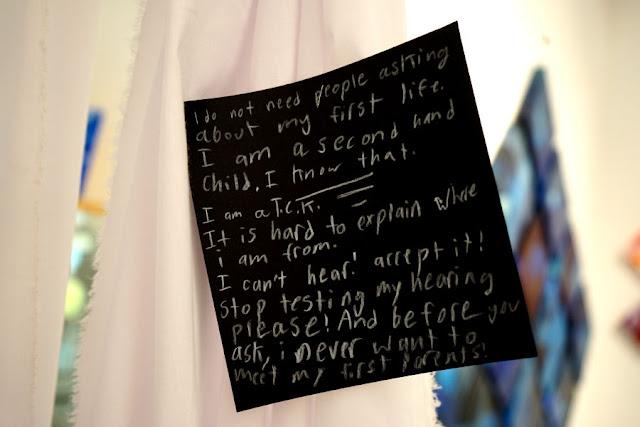 I do not need people asking
about my first life.
I am a second hand
child. I know that.
I am a T.C.K.
It is hard to explain where
i am from.
I can't hear! accept it!
stop testing my hearing
please! And before you
ask, i never want to
meet my first parents!